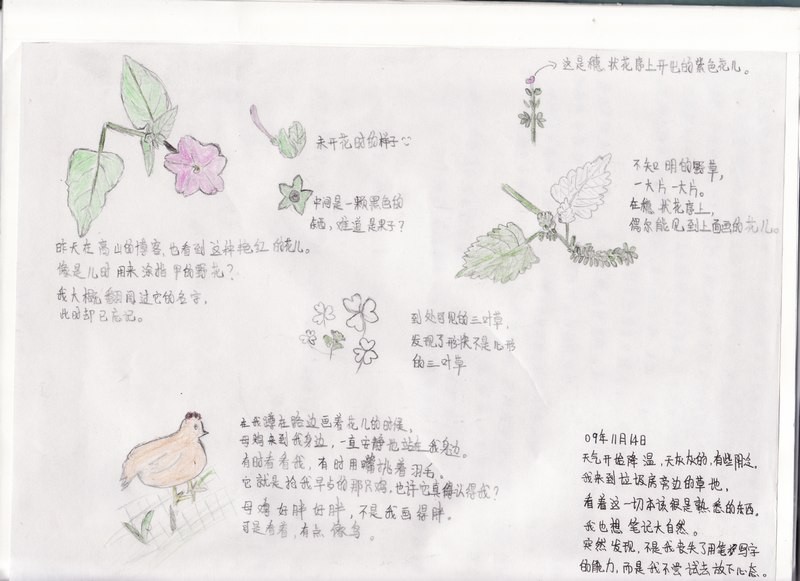 这是穗状花序上开出的紫色花儿。
未开花时的样子
中间是一颗黑色的
东西,难道是果子?
不知明的野草,
一大片一大片。
在穗状花序上,
偶尔能见到上面画的花儿。
昨天在高山的博客,也看到这种艳红的花儿。
像是儿时用来涂指甲的野花?
我大概翻阅过它的名字,
此时却已忘记。
到处可见的三叶草,
发现了形状不是心形
的三叶草
在我蹲在路边画着花儿的时候,
母鸡来到我身边,一直安静地站在我身边。
有时看看我,有时用嘴挑着羽毛。
它就是抢我早点的那只鸡,也许它真得认得我?
母鸡好胖好胖,不是我画得胖。
可是看着,有点像鸟。
09年11月14日
天气开始降温,天灰灰的,有些阴冷。
我来到垃圾房旁边的草地,
看着这一切本该很是熟悉的东西。
我也想笔记大自然。
突然发现,不是我丧失了用笔写字
的能力,而是我不尝试去放下心态。